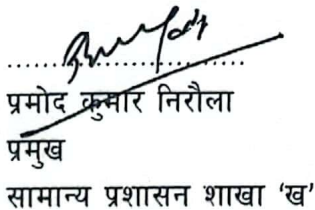 प्रमोद कुमार निरौला
प्रमुख
सामान्य प्रशासन शाखा 'ख'